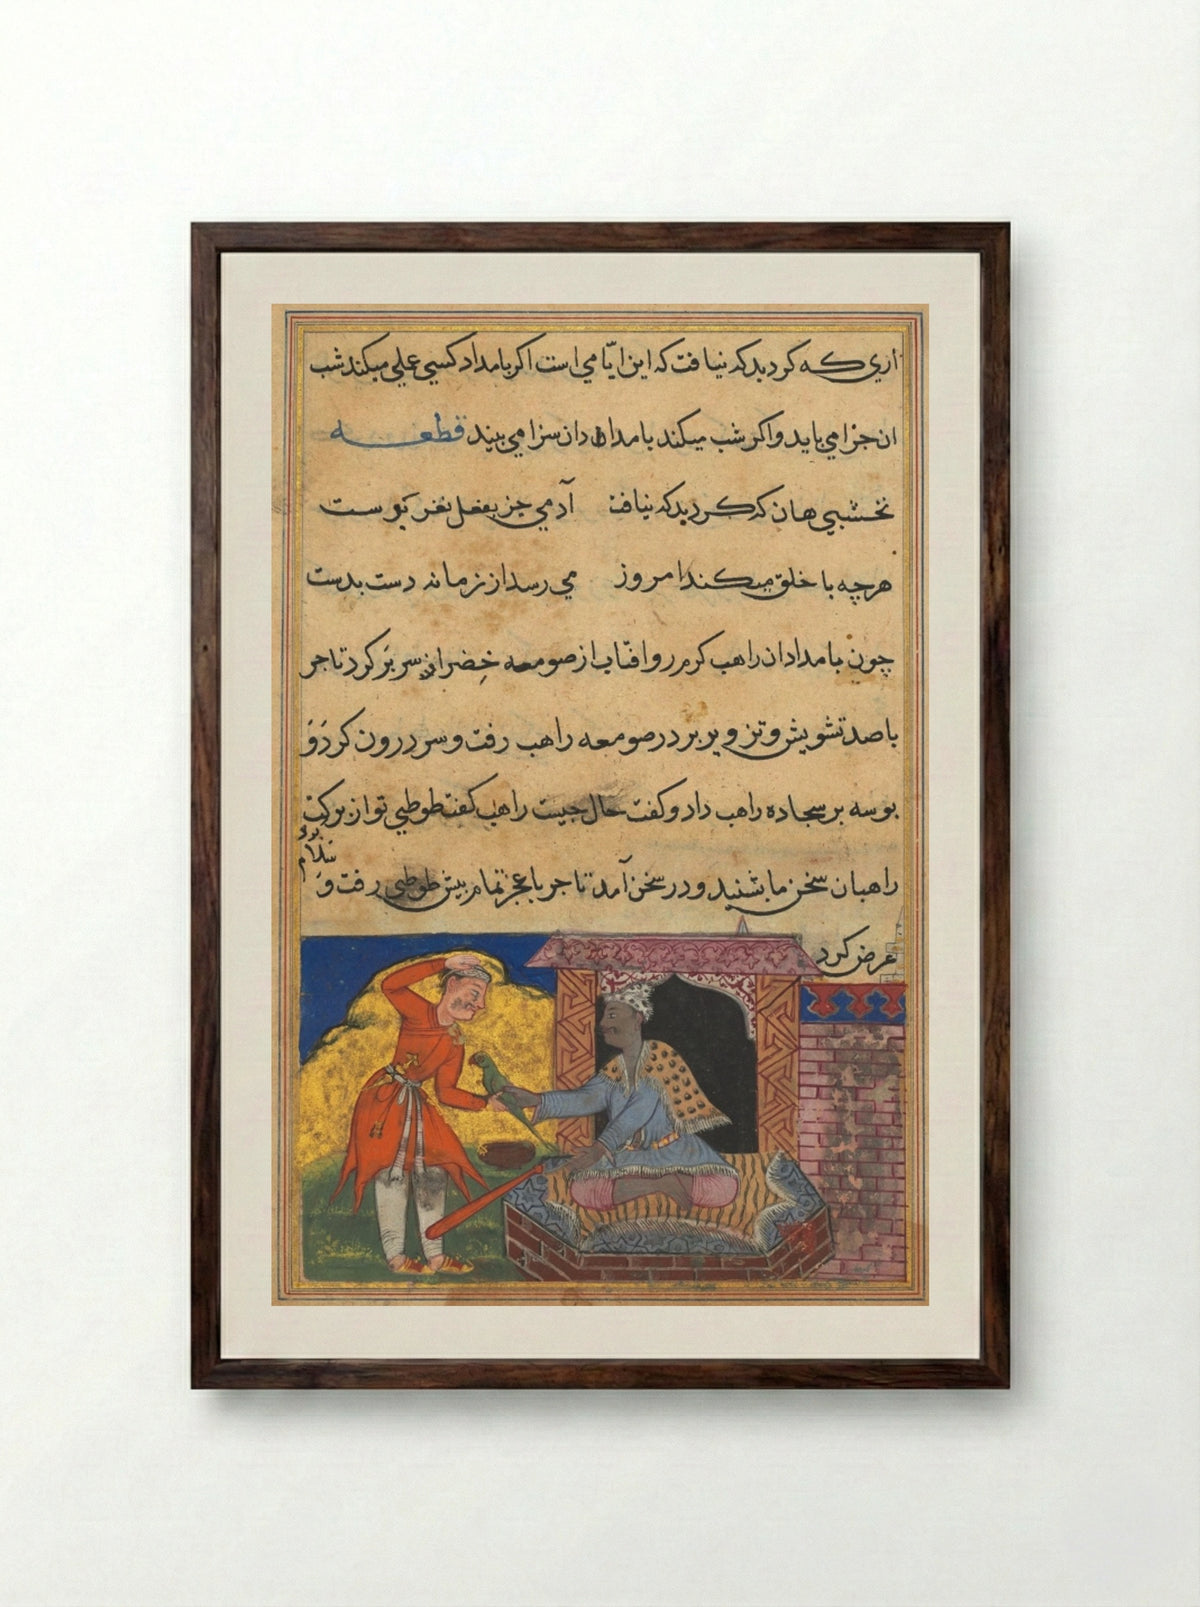 اري که کرد بد که نیافت که این ایّامي است اکر بامداد کسي عملي میکند شب
ان جزا مي باید و اکر شب میکند بامدادان سزا مي بیند قطعه
نخشبي هان که کرد بد که نیافت آدمي جز بفعل نغز نوست
هرچه با خلق میکند امروز مي رسد از زمانه دست بدست
چون بامدادان راهب کرم رو افتاب از صومعه خضرا سر برَ کرد تاجر
باصد تشویش و تزویر بر در صومعه راهب رفت و سر درون کرد وَ
بوسه بر سجاده راهب داد و کفت حال چیست راهب کفت طوطي تو از برکت
راهبان سخن ما بشنید و در سخن آمد تاجر با عجز تمام پیش طوطي رفت وَ
سلام
عرض کرد